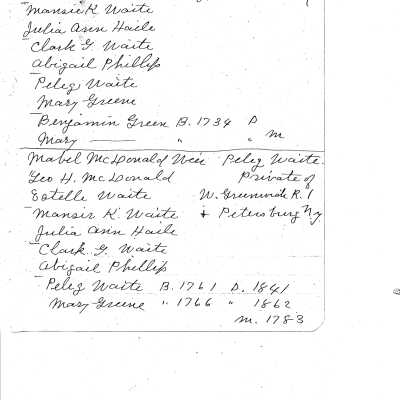 Mansir K Waite
Julia Ann Haile
Clark G. Waite
Abigail Phillips
Peleg Waite
Mary Greene
Benjamin Green B. 1734 D
Mary —— " " m
Mabel McDonald Weir Peleg Waite.
Geo H. McDonald Private of
Estelle Waite W. Greenwich R.I
Mansir K. Waite & Petersburg N.Y
Julia Ann Haile
Clark G. Waite
Abigail Phillips
Peleg Waite B. 1761 D. 1841
Mary Greene " 1766 " 1862
m. 1783